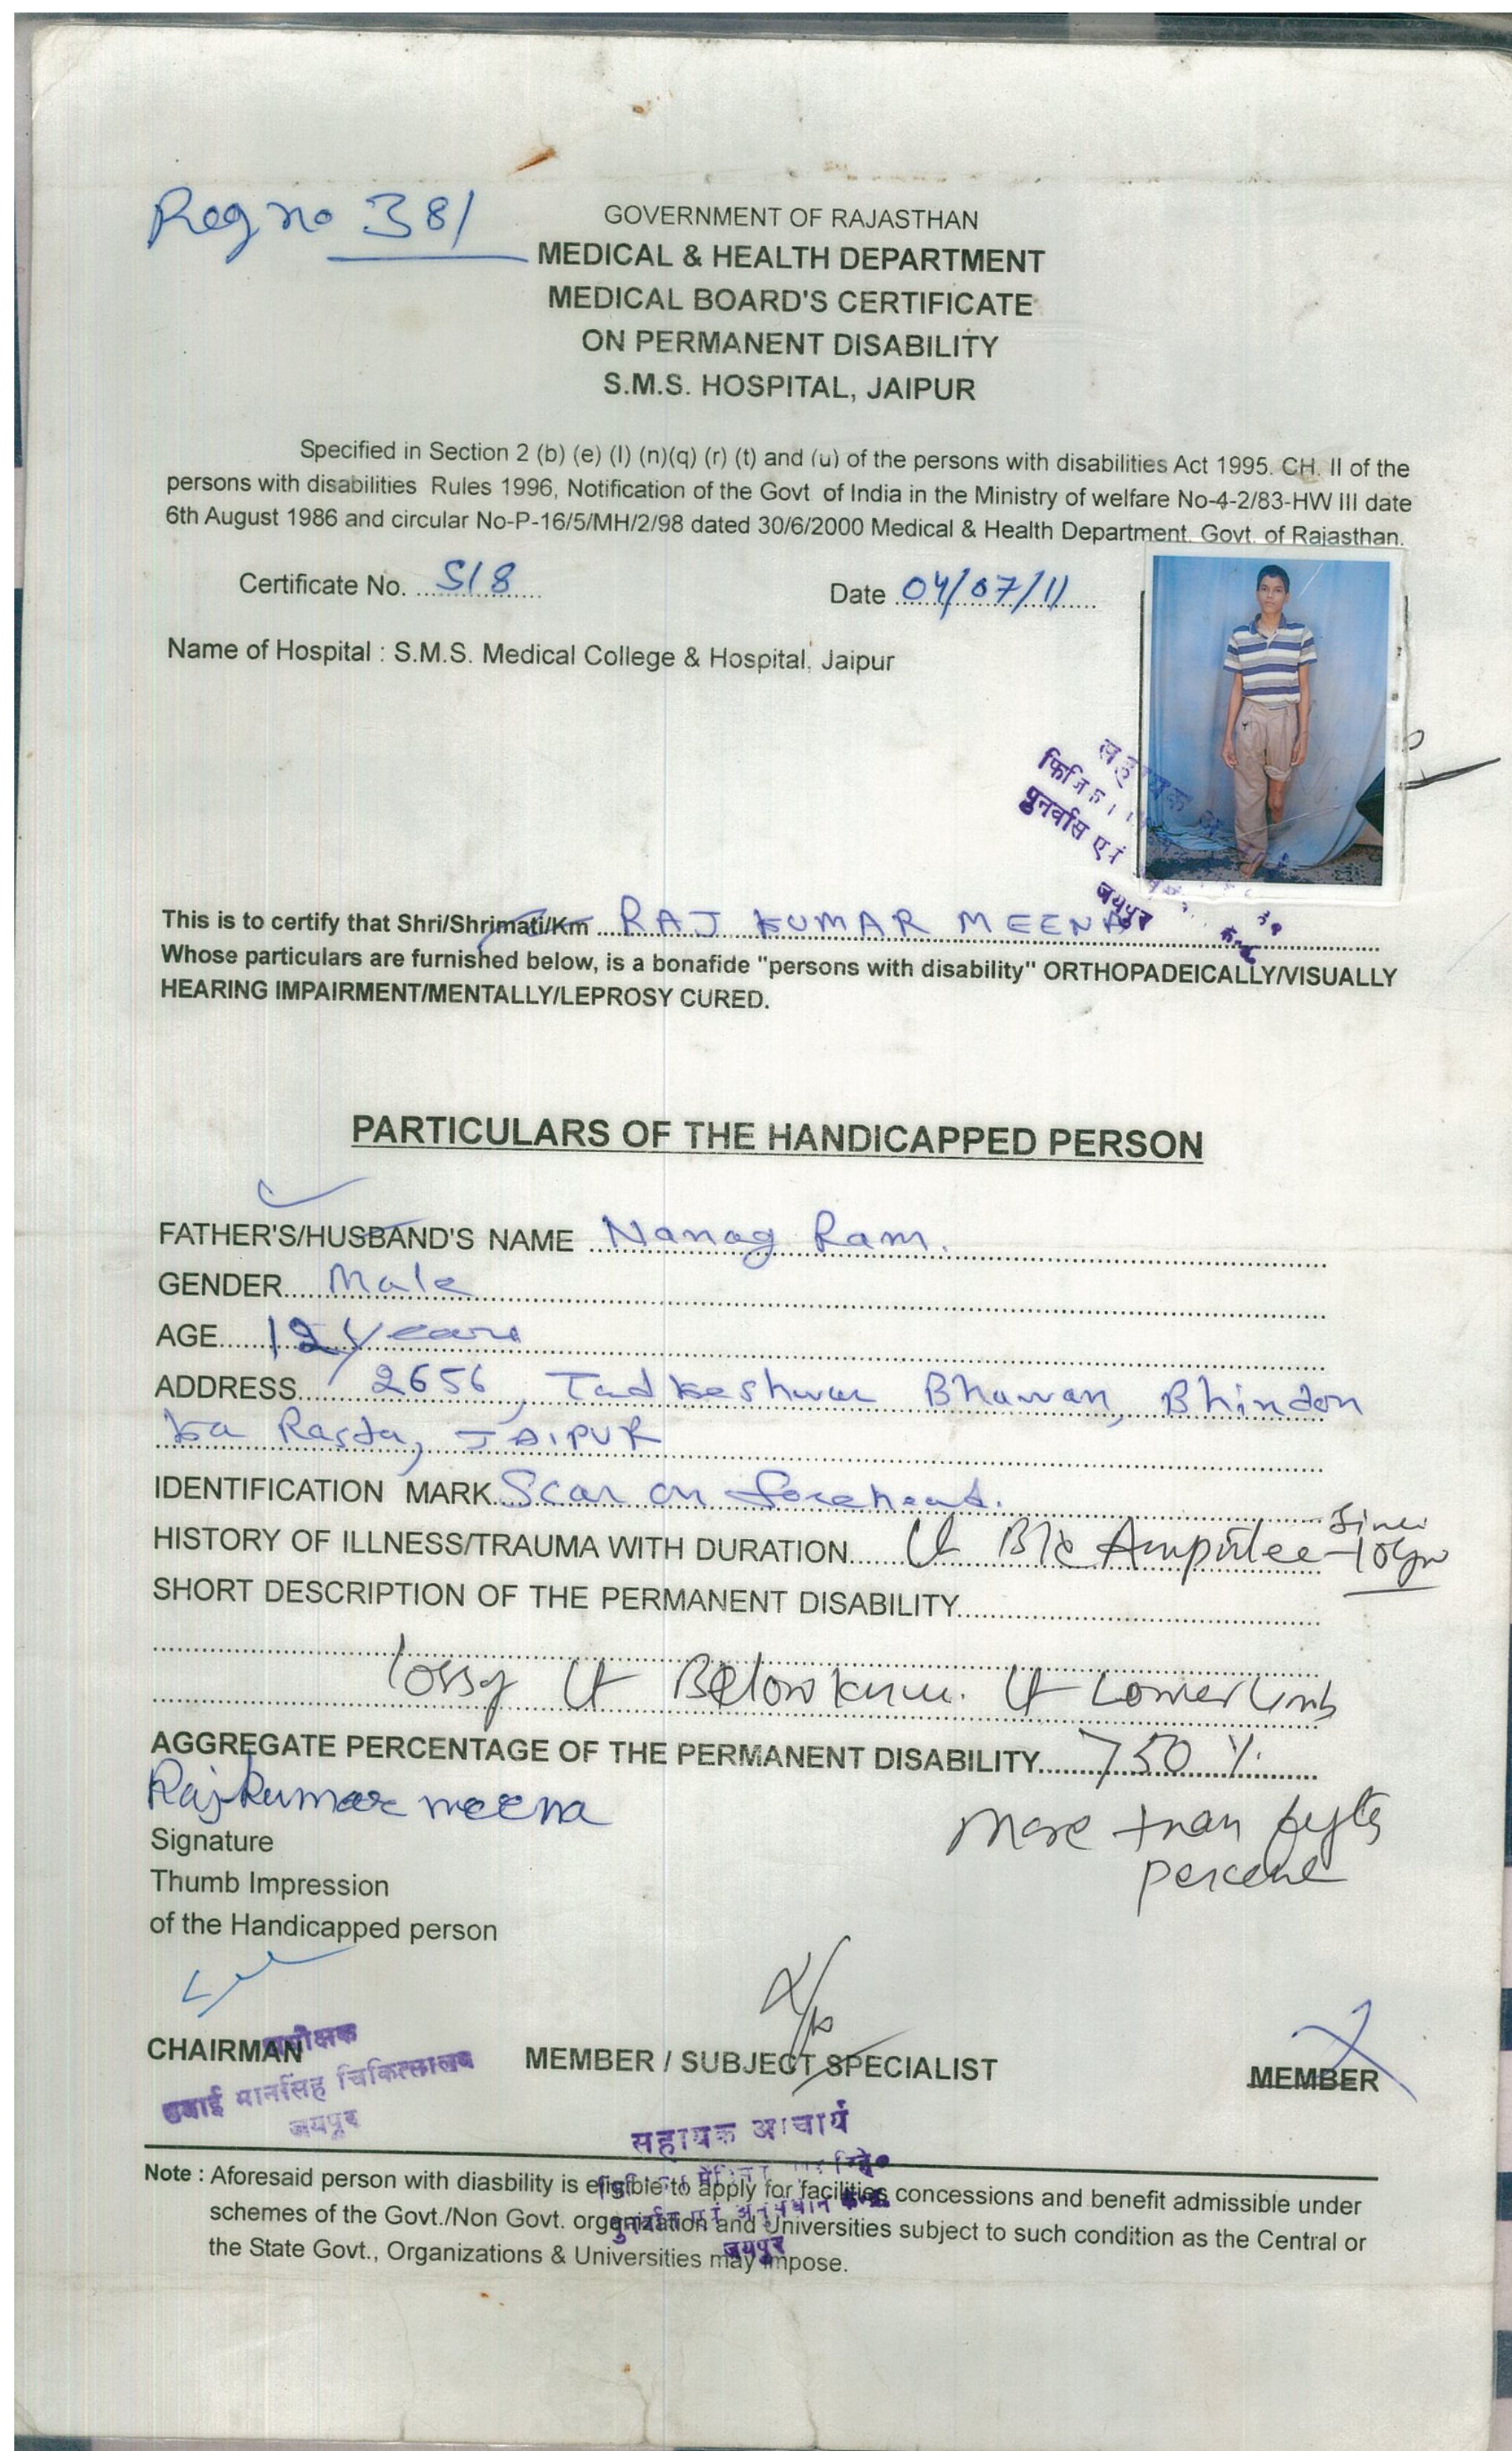 Reg no 381
GOVERNMENT OF RAJASTHAN
MEDICAL & HEALTH DEPARTMENT
MEDICAL BOARD'S CERTIFICATE
ON PERMANENT DISABILITY
S.M.S. HOSPITAL, JAIPUR
Specified in Section 2 (b) (e) (l) (n)(q) (r) (t) and (u) of the persons with disabilities Act 1995. CH. II of the
persons with disabilities Rules 1996, Notification of the Govt of India in the Ministry of welfare No-4-2/83-HW III date
6th August 1986 and circular No-P-16/5/MH/2/98 dated 30/6/2000 Medical & Health Department. Govt. of Rajasthan.
Certificate No. 518 Date 04/07/11
Name of Hospital : S.M.S. Medical College & Hospital, Jaipur
पुनर्वास एवं
जयपुर
This is to certify that Shri/Shrimati/Km RAJ KUMAR MEENA
Whose particulars are furnished below, is a bonafide "persons with disability" ORTHOPADEICALLY/VISUALLY
HEARING IMPAIRMENT/MENTALLY/LEPROSY CURED.
PARTICULARS OF THE HANDICAPPED PERSON
FATHER'S/HUSBAND'S NAME Nanag Ram.
GENDER Male
AGE 12 years
ADDRESS 2656, Tadkeshwar Bhawan, Bhindon
ka Rasta, JAIPUR
IDENTIFICATION MARK Scar on forehead.
HISTORY OF ILLNESS/TRAUMA WITH DURATION Lt B/k Amputee since 10 yr
SHORT DESCRIPTION OF THE PERMANENT DISABILITY
loss of Lt Below knee. Lt Lower limb
AGGREGATE PERCENTAGE OF THE PERMANENT DISABILITY >50 %
Rajkumar meena
more than fifty
percent
Signature
Thumb Impression
of the Handicapped person
CHAIRMAN MEMBER / SUBJECT SPECIALIST MEMBER
अधीक्षक
सवाई मानसिंह चिकित्सालय
जयपुर
सहायक आचार्य
पुनर्वास एवं अनुसंधान केन्द्र
जयपुर
Note : Aforesaid person with diasbility is eligible to apply for facilities concessions and benefit admissible under
schemes of the Govt./Non Govt. organization and Universities subject to such condition as the Central or
the State Govt., Organizations & Universities may impose.